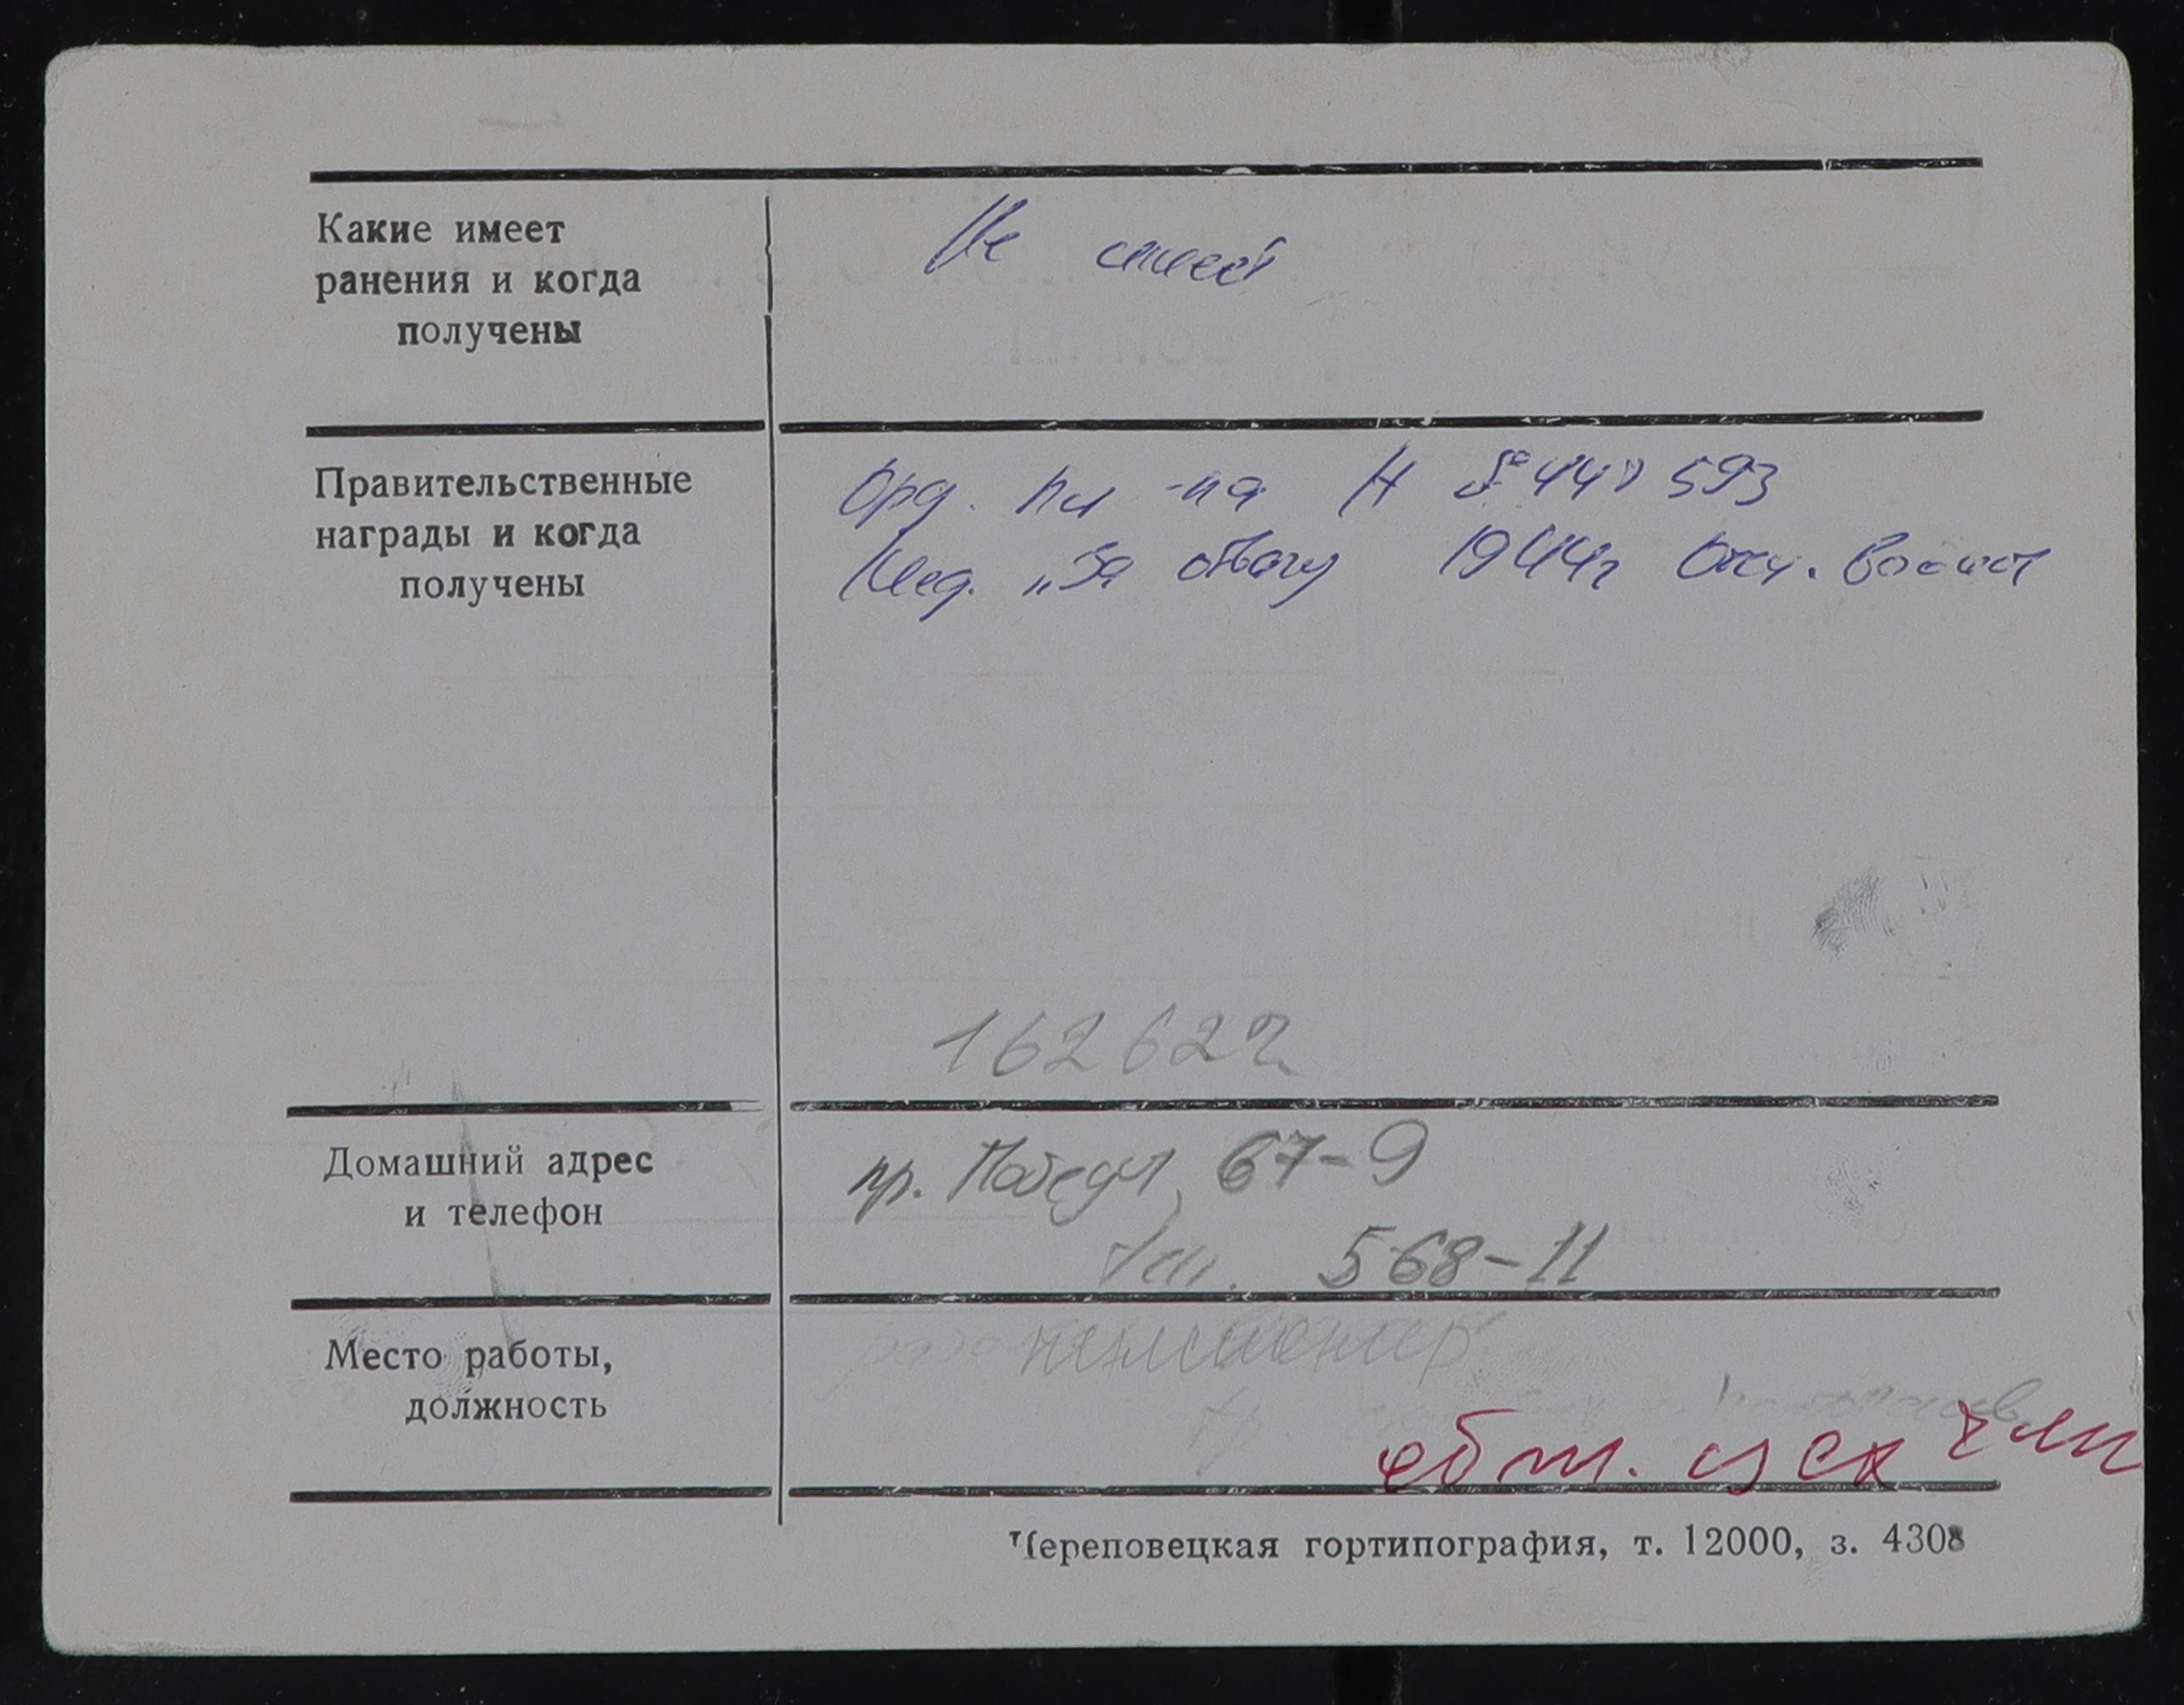 Какие имеет
ранения и когда
получены
Не имеет
Правительственные
награды и когда
получены
Орд. на
Мед. „За отвагу 1944г
162622
Домашний адрес
и телефон
пр. Победы, 67-9
тел. 568-11
Место работы,
должность
пенсионер
цех
Череповецкая гортипография, т. 12000, з. 4308